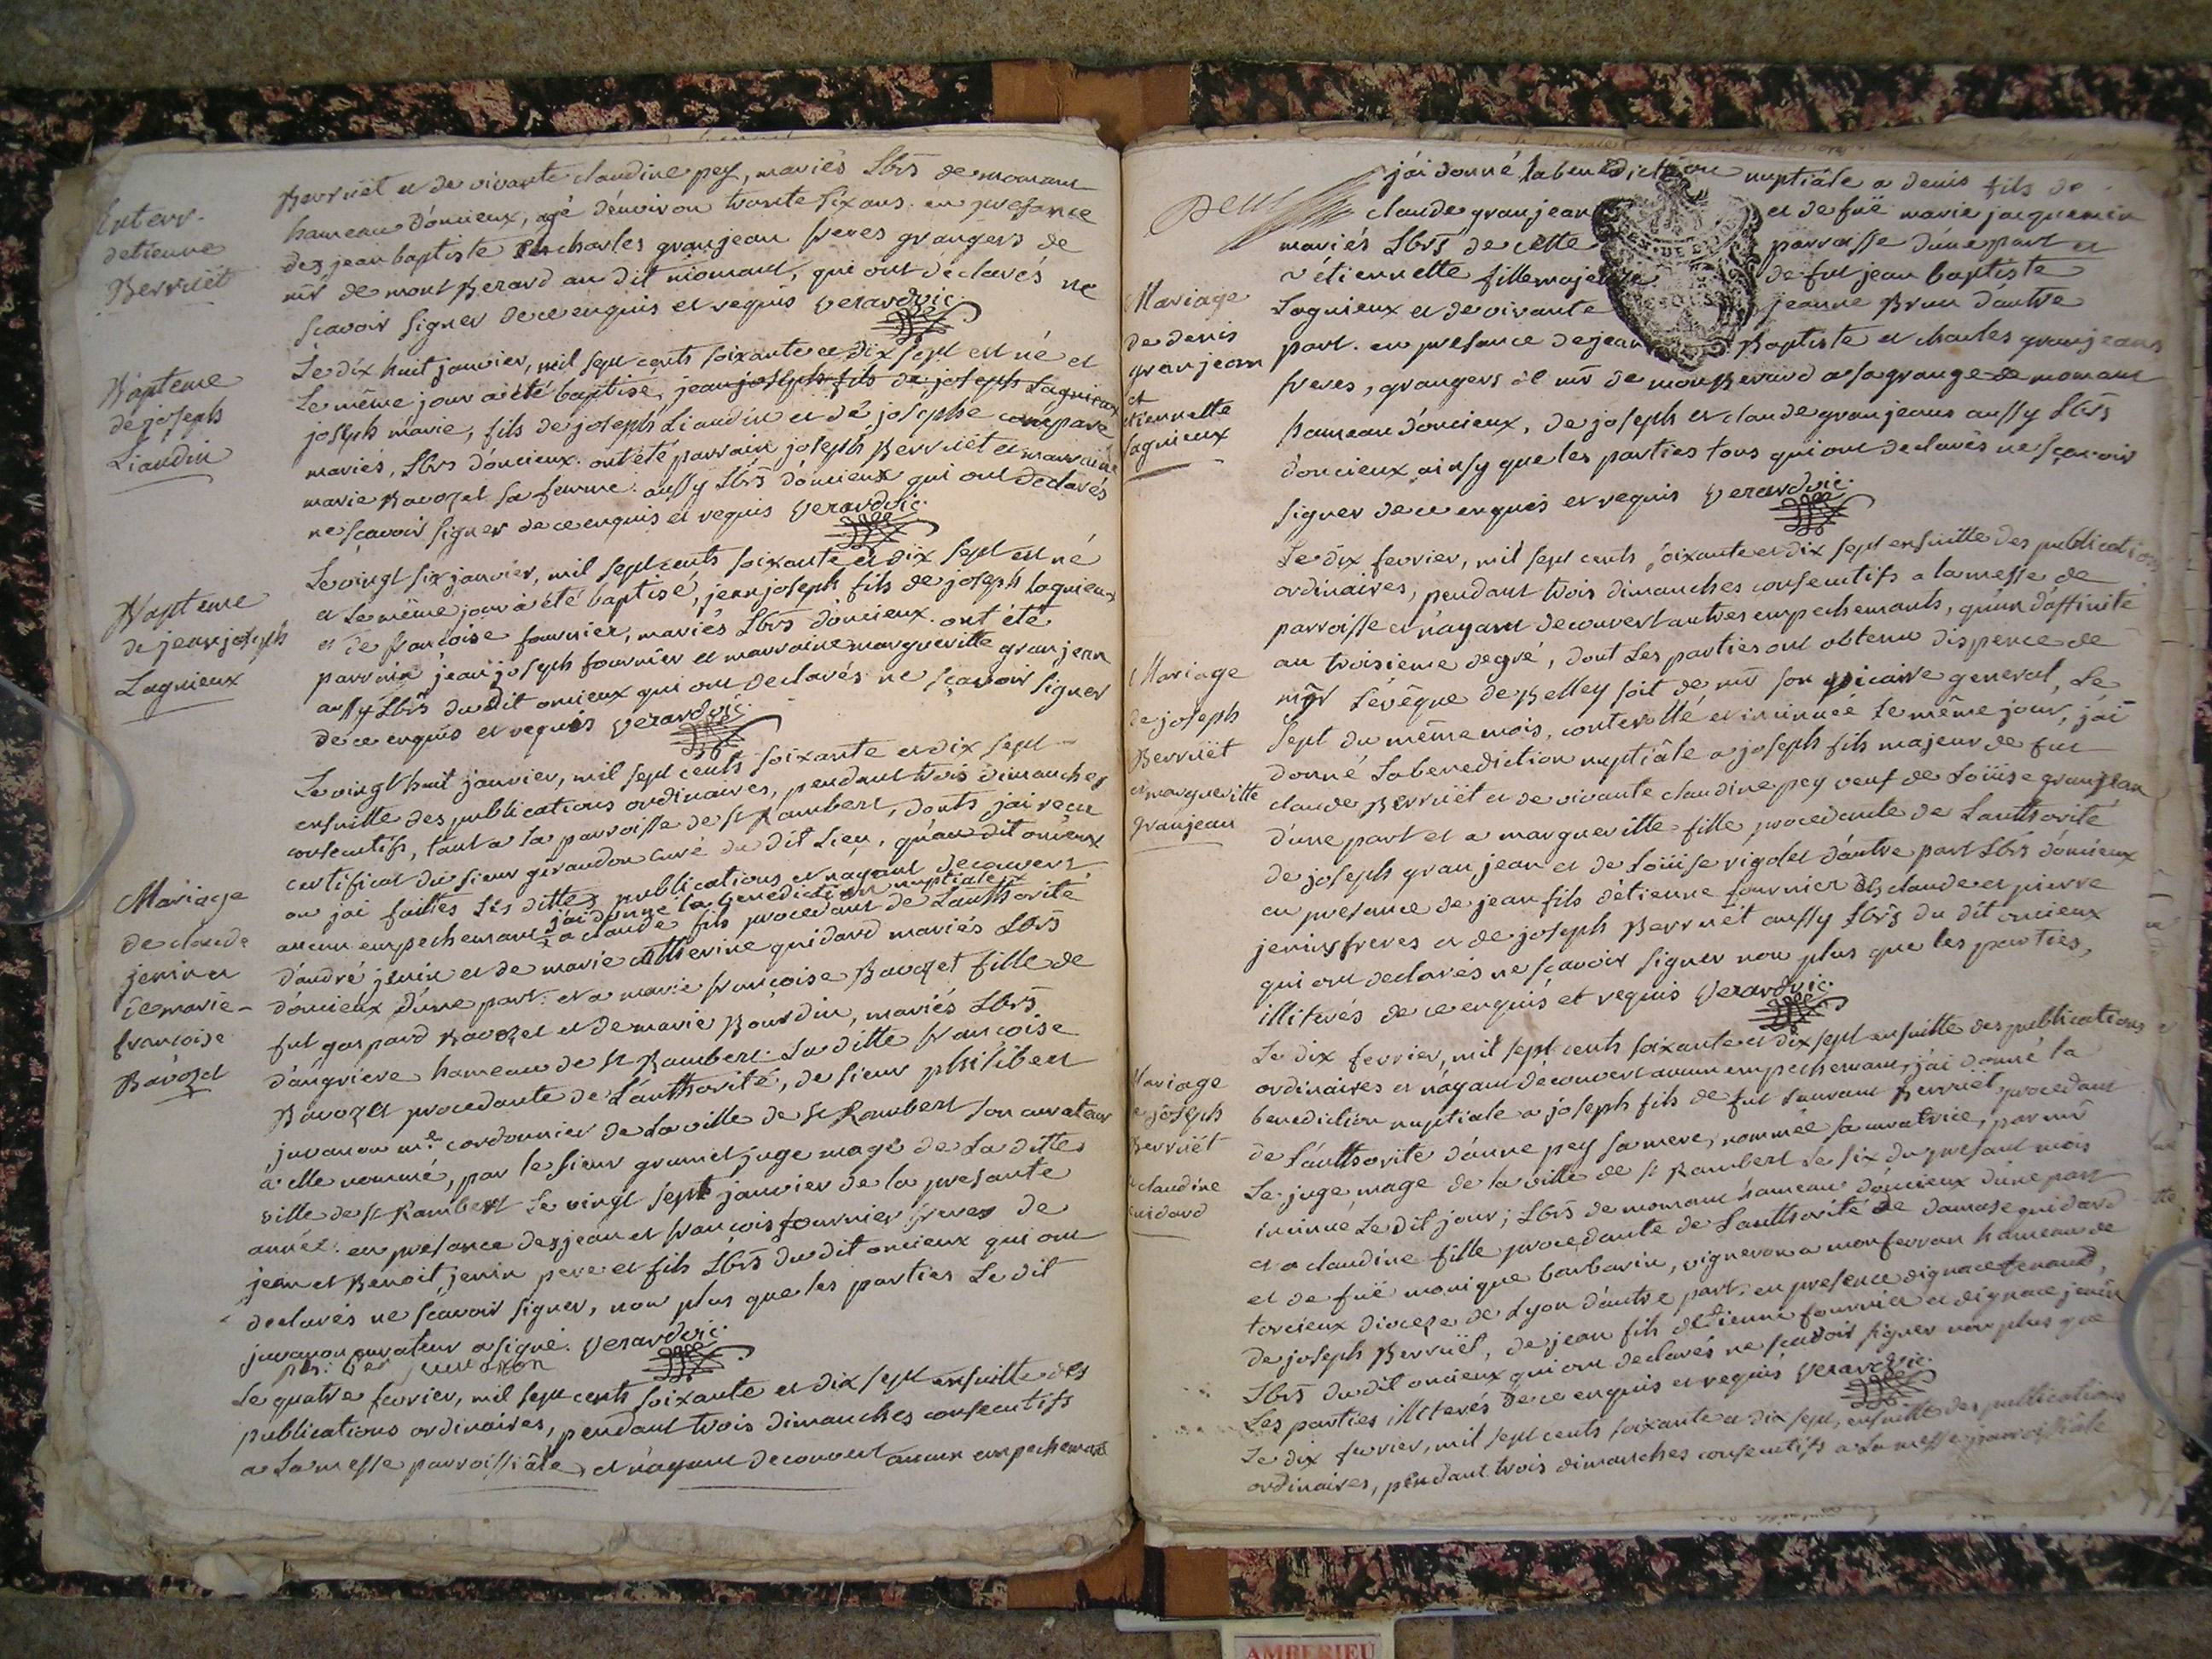 Enterr.
detienne
Berruët
Berruët et de vivante claudine pey, mariés Lbrs de momant
hameau d'oncieux, agé d'environ trante six ans. en presance
des jean baptiste et charles granjean freres grangers de
mr de mont Berard au dit momant, qui ont déclarés ne
scavoir signer de ce enquis et requis verardvic.
Bapteme
de joseph
Liaudin
Le dix huit janvier, mil sept cents soixante et dix sept est né et
Le même jour a été baptisé, jean joseph fils de joseph Lagnieux
joseph marie, fils de joseph Liaudin et de josephe
mariés, Lbrs d'oncieux. ont été parrain joseph Berruët et marraine
marie Bavozet sa femme. aussy Lbrs d'oncieux qui ont declarés
ne scavoir signer de ce enquis et requis verardvic.
Bapteme
de jean joseph
Lagnieux
Le vingt six janvier, mil sept cents soixante et dix sept est né
et Le même jour a été baptisé, jean joseph fils de joseph lagnieux
et de françoise fournier, mariés Lbrs d'oncieux. ont été
parrain jean joseph fournier et marraine margueritte granjean
aussy Lbrs du dit oncieux qui ont declarés ne scavoir signer
de ce enquis et requis verardvic.
Mariage
de claude
jenin et
de marie-
françoise
Bavozet
Le vingt huit janvier, mil sept cents soixante et dix sept
ensuitte des publications ordinaires, pendant trois dimanches
consecutifs, tant a la parroisse de st Rambert, donts jai recu
certificat du sieur giraudon curé du dit Lieu, qu'au dit oncieux
ou jai faittes Les dittes publications et n'ayant decouvert
j'ai donné la benediction nuptiale
aucun empechemant a claude fils procedant de L'authorité
d'andré jenin et de marie catherine guidard mariés Lbrs
d'oncieux d'une part. et a marie françoise Bavozet fille de
fut gaspard Bavozet et de marie Bourdin, mariés Lbrs
d'angriere hameau de st Rambert. La ditte françoise
Bavozet procedante de L'authorité, de sieur philibert
juvanon me cordonnier de La ville de st Rambert son curateur
a elle nommé, par le sieur grumet juge mage de La ditte
ville de st Rambert Le vingt sept janvier de la presante
année. en presance des jean et françois fournier freres de
jean et Benoit jenin pere et fils Lbrs du dit oncieux qui ont
declarés ne scavoir signer, non plus que les parties Le dit
juvanon curateur a signé. verardvic.
juvanon
Le quatre fevrier, mil sept cents soixante et dix sept ensuitte des
publications ordinaires, pendant trois dimanches consecutifs
a La messe parroissiâle, et n'ayant decouvert aucun empechemant
Deux
Mariage
de denis
granjean
et
etiennette
lagnieux
j'ai donné la benediction nuptiâle a denis fils de
claude granjean et de fuë marie jacquemin
mariés Lbrs de cette parroisse d'une part et
a étiennette fille majeure de fut jean baptiste
Lagnieux et de vivante jeanne Brun d'autre
part. en presance de jean Baptiste et charles granjeans
freres, grangers de mr de mont Berard a sa grange de momant
hameau d'oncieux, de joseph et claude granjeans aussy Lbrs
d'oncieux, ainsy que les parties tous qui ont declarés ne scavoir
signer de ce enquis et requis verardvic.
Mariage
de joseph
Berruët
et margueritte
granjean
Le dix fevrier, mil sept cents soixante et dix sept ensuitte des publications
ordinaires, pendant trois dimanches consecutifs a la messe de
parroisse et n'ayant decouvert autres empechemants, qu'un d'affinité
au troisieme degré, dont Les parties ont obtenu dispence de
mgr L'evêque de Belley soit de mr son vicaire general, Le
sept du même mois, conterollé et insinuée Le même jour, j'ai
donné La benediction nuptiâle a joseph fils majeur de fut
claude Berruët et de vivante claudine pey veuf de Loüise granjean
d'une part et a margueritte fille procedante de L'authorité
de joseph granjean et de Loüise rigolet d'autre part Lbrs d'oncieux
en presance de jean fils d'etienne fournier des claude et pierre
jenins freres et de joseph Berruët aussy Lbrs du dit oncieux
qui ont declarés ne scavoir signer non plus que les parties,
illiterés de ce enquis et requis verardvic.
Mariage
de joseph
Berruët
et claudine
guidard
Le dix fevrier, mil sept cents soixante et dix sept ensuitte des publications
ordinaires et n'ayant decouvert aucun empechemant, j'ai donné la
benediction nuptiale a joseph fils de fut Laurant Berruët, procedant
de L'authorité d'anne pey sa mere, nommée sa curatrice, par mr
Le juge mage de la ville de st Rambert Le six du presant mois
insinué Le dit jour; Lbrs de momant hameau d'oncieux d'une part
et a claudine fille procedante de L'authorité de damase guidard
et de fuë monique barbarin, vigneron a monferran hameau de
torcieux dioceze de Lyon d'autre part. en presence d'ignace tenand,
de joseph Berruët, de jean fils d'etienne fournier et d'ignace jenin
Lbrs du dit oncieux qui ont declarés ne scavoir signer non plus que
Les parties illiterés de ce enquis et requis verardvic.
Le dix fevrier, mil sept cents soixante et dix sept, ensuitte des publications
ordinaires, pendant trois dimanches consecutifs a La messe parroissiâle
AMBERIEU